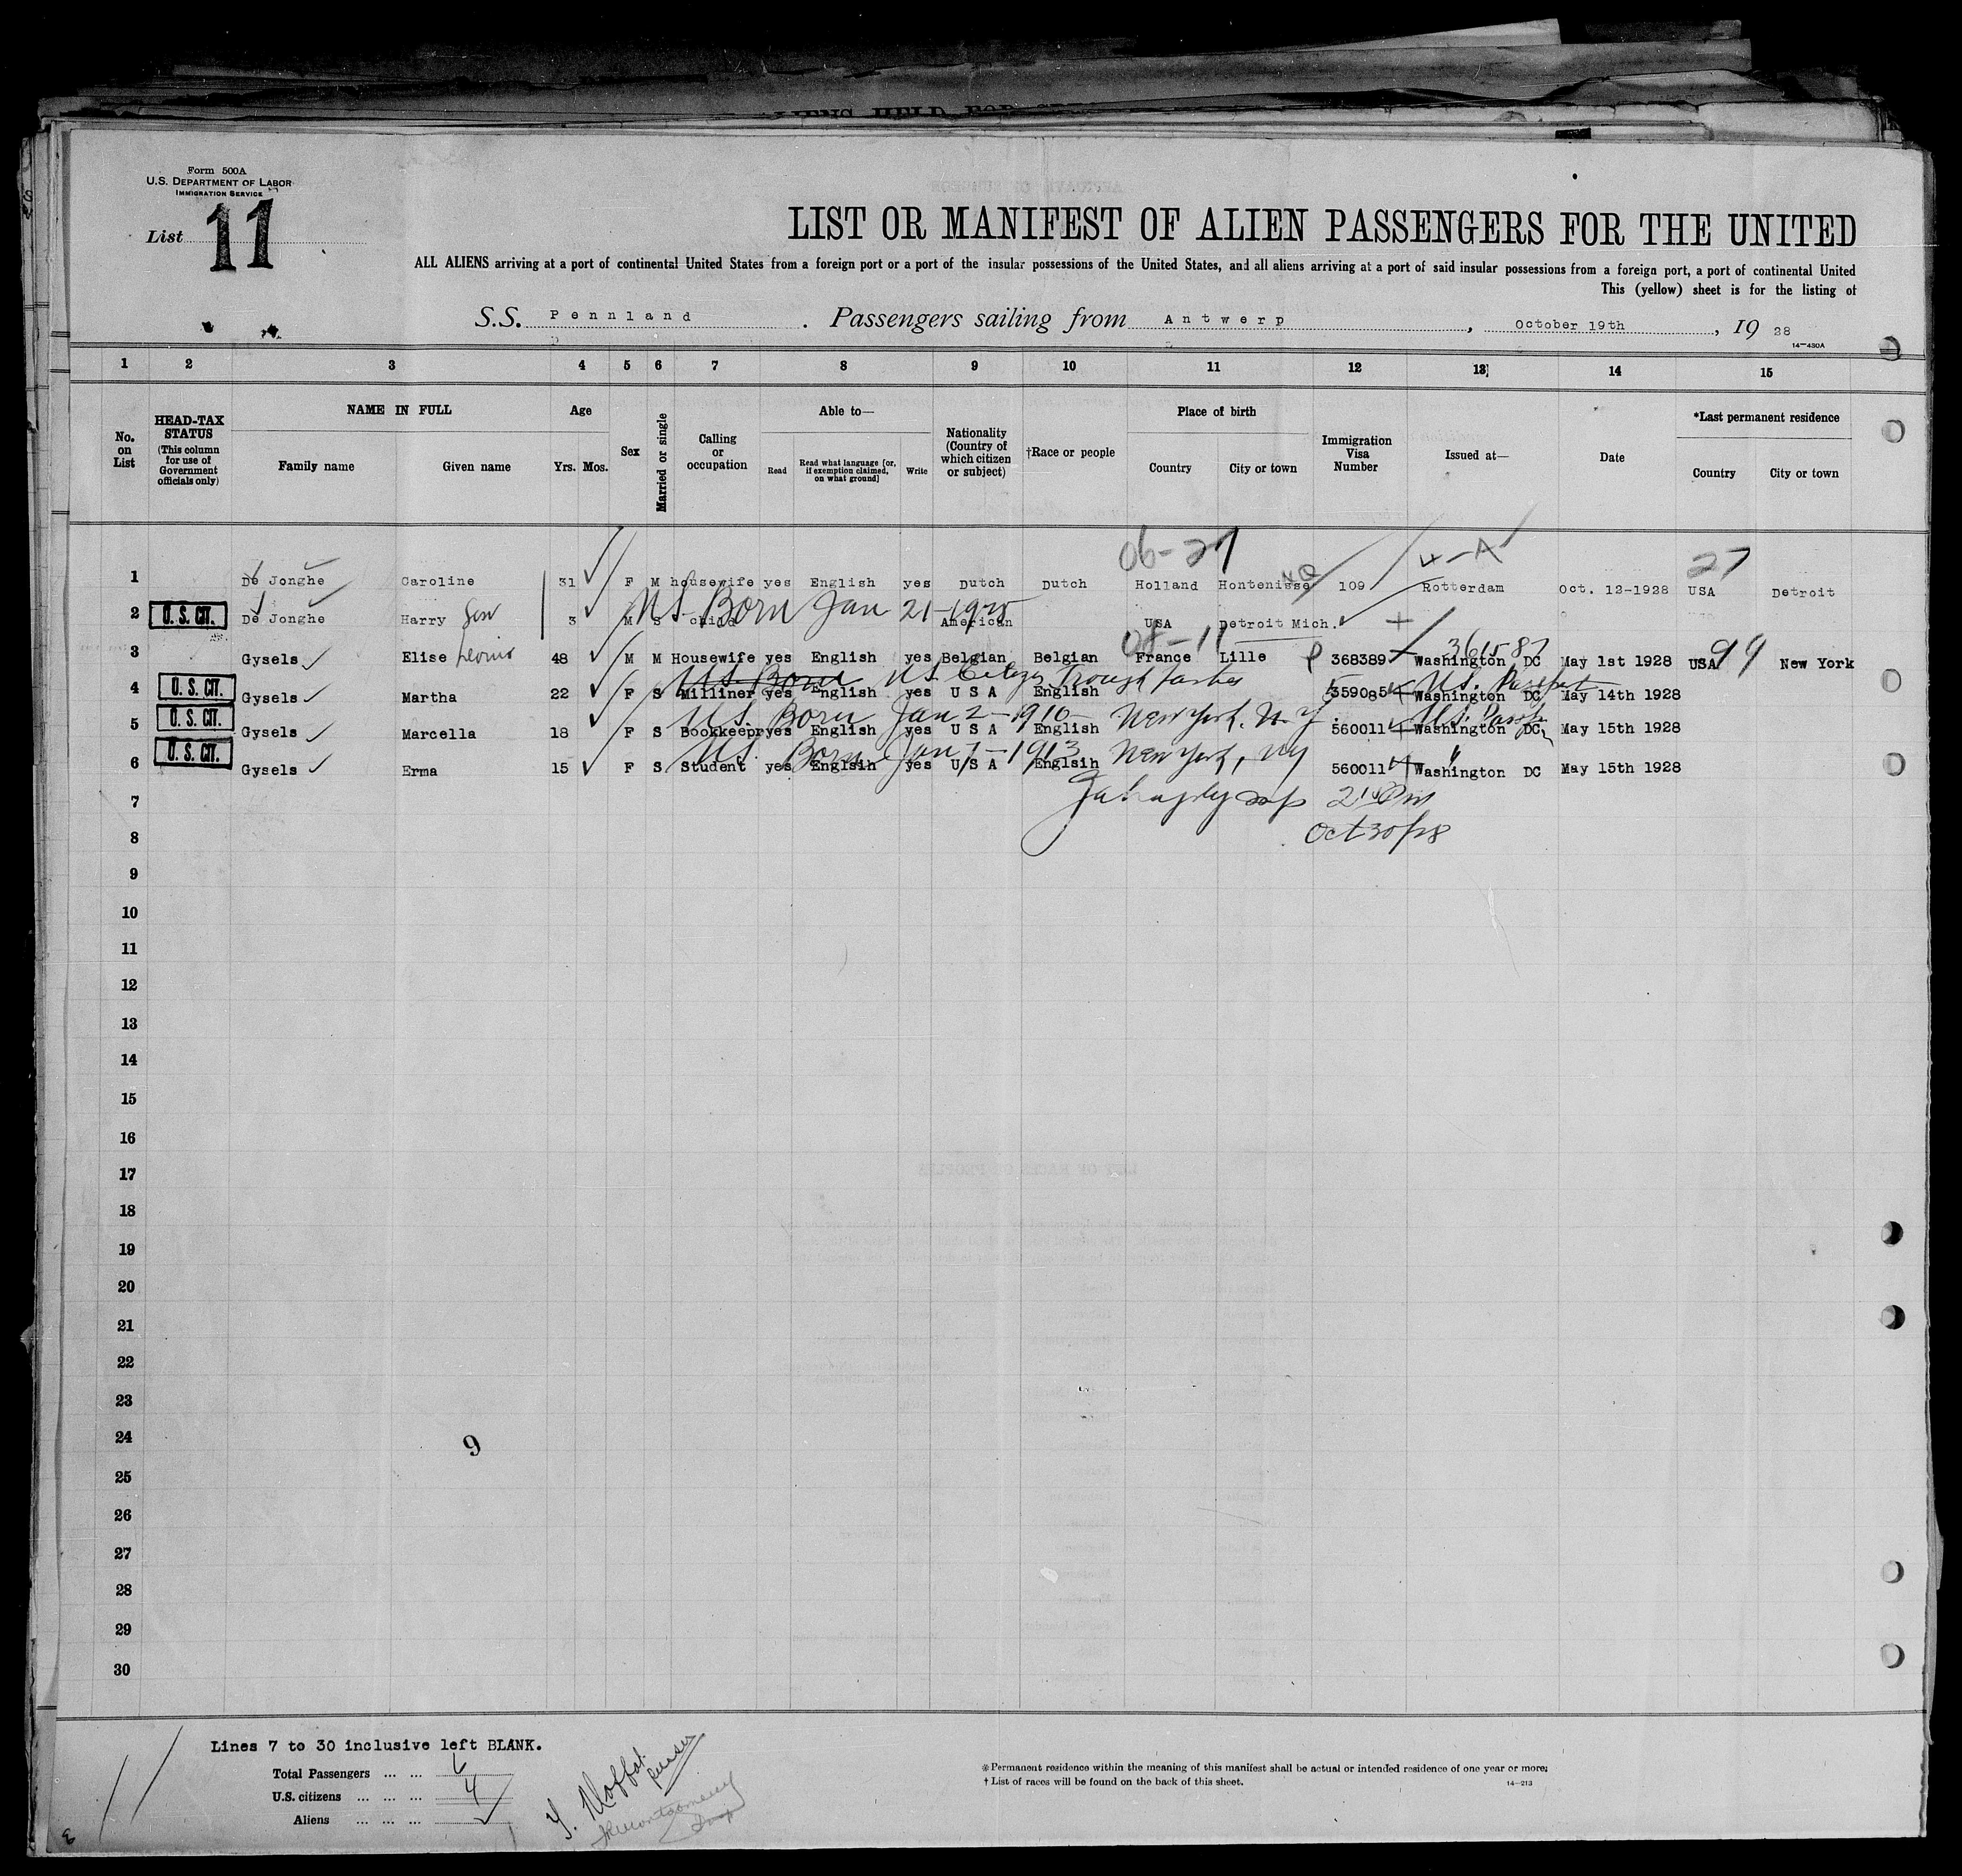 Form 500A
U.S. DEPARTMENT OF LABOR
IMMIGRATION SERVICE
List 11
LIST OR MANIFEST OF ALIEN PASSENGERS FOR THE UNITED
ALL ALIENS arriving at a port of continental United States from a foreign port or a port of the insular possessions of the United States, and all aliens arriving at a port of said insular possessions from a foreign port, a port of continental United
This (yellow) sheet is for the listing of
S.S. Pennland. Passengers sailing from Antwerp, October 19th, 1928
14-430A
1 2 3 4 5 6 7 8 9 10 11 12 13 14 15
No. on List
HEAD-TAX STATUS (This column for use of Government officials only)
NAME IN FULL
Family name Given name
Age
Yrs. Mos.
Sex
Married or single
Calling or occupation
Able to—
Read Read what language [or, if exemption claimed, on what ground] Write
Nationality (Country of which citizen or subject)
†Race or people
Place of birth
Country City or town
Immigration Visa Number
Issued at—
Date
*Last permanent residence
Country City or town
06-27 4-A 27
1 De Jonghe Caroline 31 F M housewife yes English yes Dutch Dutch Holland Hontenisse 109 Rotterdam Oct. 12-1928 USA Detroit
US Born Jan 21-1925
2 U.S. CIT. De Jonghe Harry Son 3 M S child American USA Detroit Mich.
08-11 361587 99
3 Gysels Elise 48 M M Housewife yes English yes Belgian Belgian France Lille 368389 Washington DC May 1st 1928 USA New York
US Born US Citizen Trough father US. Passport
4 U.S. CIT. Gysels Martha 22 F S Milliner yes English yes U S A English 359085 Washington DC May 14th 1928
US. Born Jan 2-1910 New York. N.Y. US. Passp
5 U.S. CIT. Gysels Marcella 18 F S Bookkeepr yes English yes U S A English 560011 Washington DC May 15th 1928
US. Born Jan 7-1913 New York, NY "
6 U.S. CIT. Gysels Erma 15 F S Student yes Englsih yes U S A Englsih 560011 Washington DC May 15th 1928
7
Oct 30/28
8
9
10
11
12
13
14
15
16
17
18
19
20
21
22
23
24
9
25
26
27
28
29
30
Lines 7 to 30 inclusive left BLANK.
Total Passengers ... ... 6
U.S. citizens ... ... ... 4
Aliens ... ... ...
Moffat Purser
*Permanent residence within the meaning of this manifest shall be actual or intended residence of one year or more.
† List of races will be found on the back of this sheet.
14-213